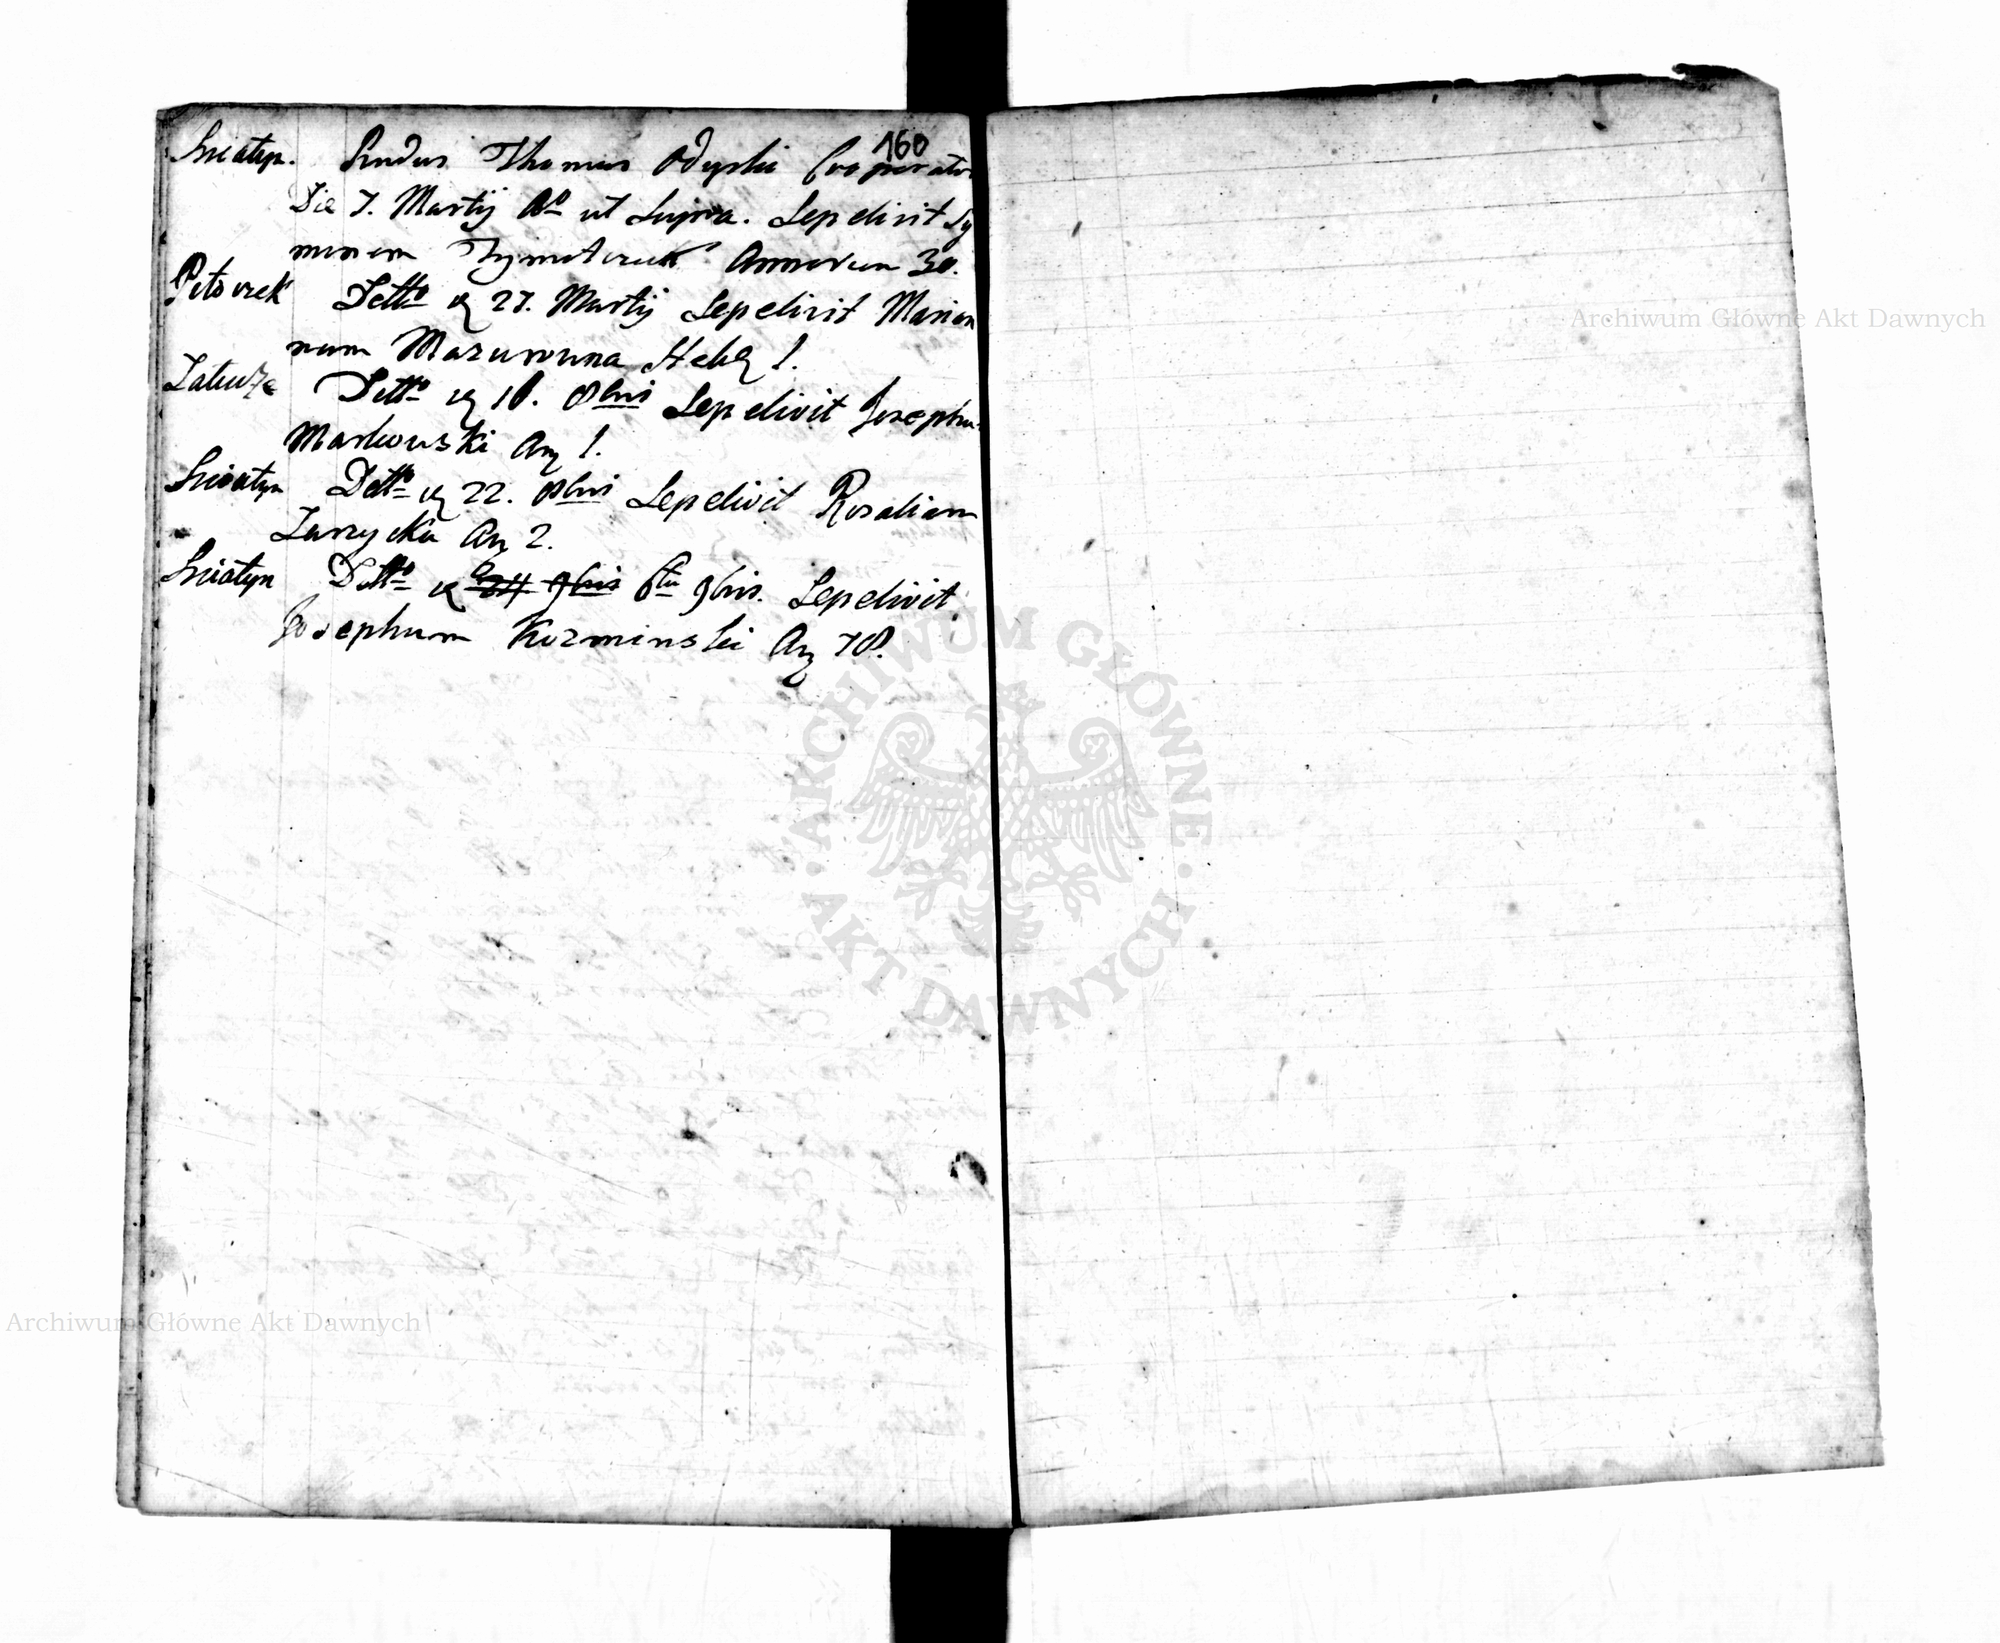 160
Sniatyn. Rndus Thomas Odyski Cooperator
Die 7. Martij Ao ut Supra. Sepelivit Sy
monem Tymoteruk Annorum 30.
Potoczek Detto 27. Martij Sepelivit Marian
nam Mazurowna Heb 1.
Zalucze Detto 18. 8bris Sepelivit Josephu
Markowski An 1.
Sniatyn Detto 22. 8bris Sepelivit Rosaliam
Zarzycka An 2.
Sniatyn Detto 24 9bris 6ta 9bris. Sepelivit
Josephum Kozminski An 78.
Archiwum Główne Akt Dawnych
ARCHIWUM GŁÓWNE AKT DAWNYCH
Archiwum Główne Akt Dawnych